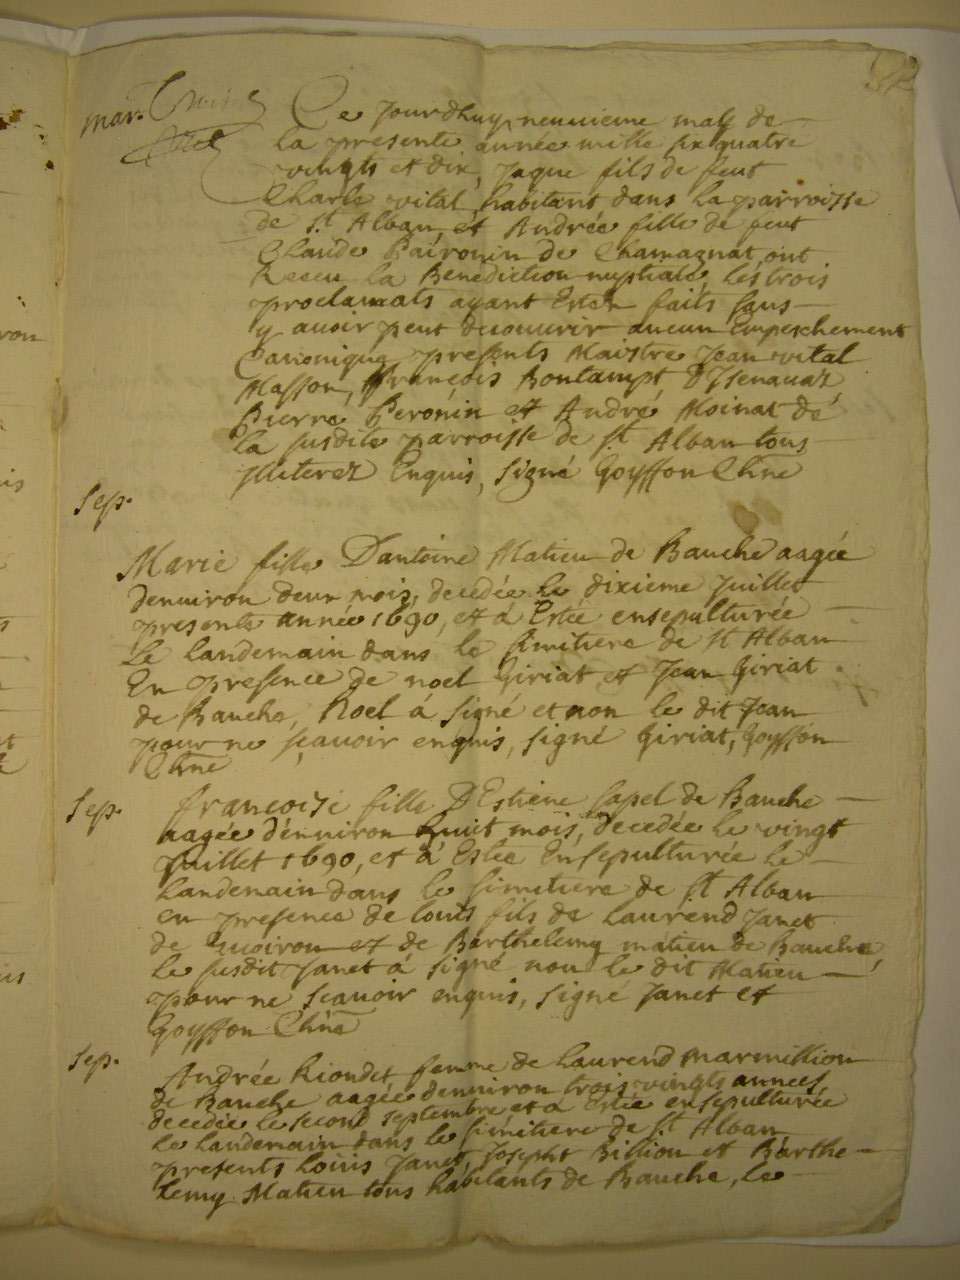 mar.
Ce Jourdhuy neuvieme may de
la presente année mille six quatre
vingts et dix, Jaque fils de feut
Charle vital, habitant dans la parroisse
de St Alban, et Andrée fille de feut
Claude Paironin de Chamagnat, ont
Receu la Benediction nuptiale, les trois
proclamats ayant Estez faits sans
y avoir peut decouvrir aucun Empeschement
Canonique, presents Maistre Jean vital
Masson, François Bontampt
Pierre Peronin et André Moinat de
la susdite parroisse de St Alban tous
Jlliterez Enquis, signé Goyffon Chne
Sep.
Marie fille Dantoine Matieu de Bauche aagée
denuiron deux mois, decedée le dixieme Juillet
presente année 1690, et á Estée ensepulturée
Le landemain dans le simitiere de St Alban
En presence de noel Giriat et Jean Giriat
de Bauche, Noel a signé et non le dit Jean
pour ne sçavoir enquis, signé Giriat, Goyffon
Chne
Sep.
francoise fille DEstiene sapel de Bauche
aagée d'enuiron huit mois, decedée le vingt
Juillet 1690, et á Estée Ensepulturée le
landemain dans le simitiere de St Alban
en presence de louis fils de laurend Janet
de et de Barthelemy matieu de Bauche,
le susdit Janet á signé non le dit Matieu
pour ne scavoir enquis, signé Janet et
Goyffon Chne
Sep.
Andrée Riondet femme de laurend marmillion
de Bauche aagée denuiron trois vingts années
decedée le second septembre et a Estée ensepulturée
le landemain dans le simitiere de St Alban
presents louis Janet Joseph Billion et Barthe
lemy Matieu tous habitants de Bauche, le